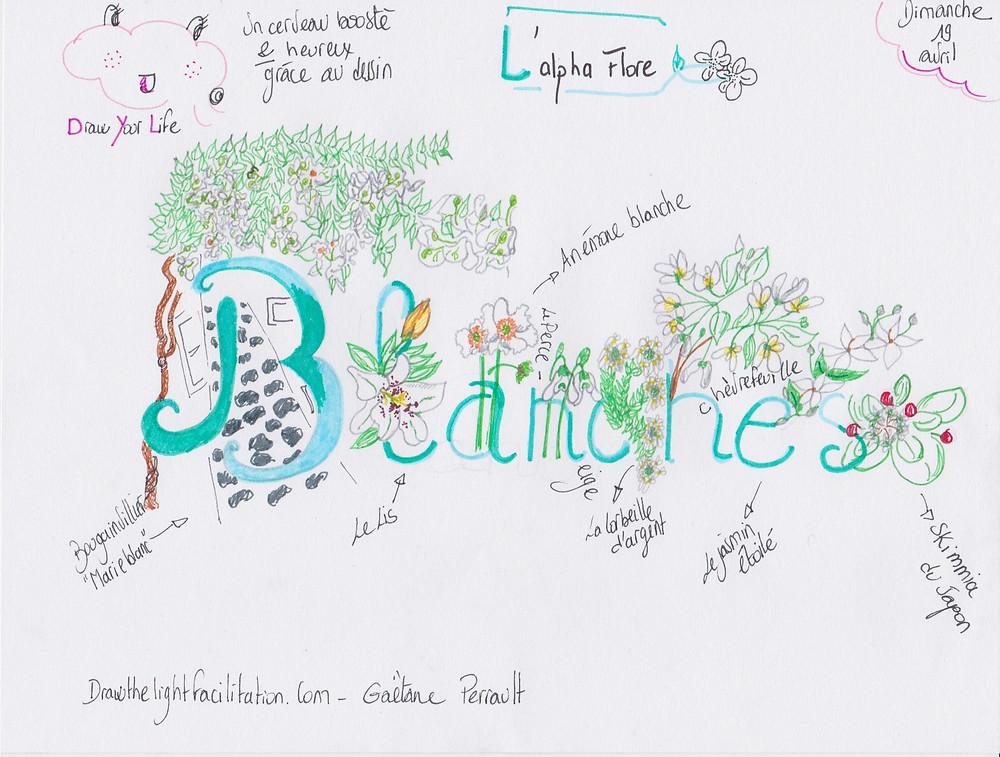 Un cerveau boosté
e heureux
grâce au dessin
Draw Your Life
L'alpha Flore
Dimanche
19
avril
Blanches
Anémone blanche
Le Perce-
neige
chèvrefeuille
Bougainvillier
"Marie blanc"
Le Lis
La Corbeille
d'argent
Le jasmin
étoilé
Skimmia
du Japon
Drawthelightfacilitation.com - Gaëtane Perrault